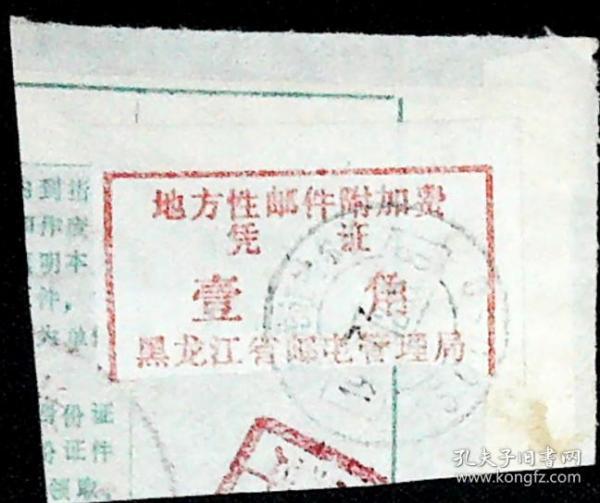 地方性邮件附加费
凭 证
壹 角
黑龙江省邮电管理局
到指
明本
件，
身份证
份证件
领取。
孔夫子旧书网
www.kongfz.com